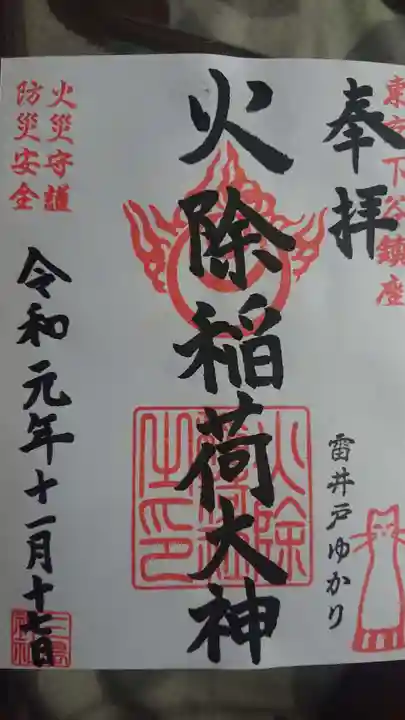 東京下谷鎮座
奉拝
雷井戸ゆかり
火除稲荷大神
火災守護
防災安全
令和元年十一月十七日